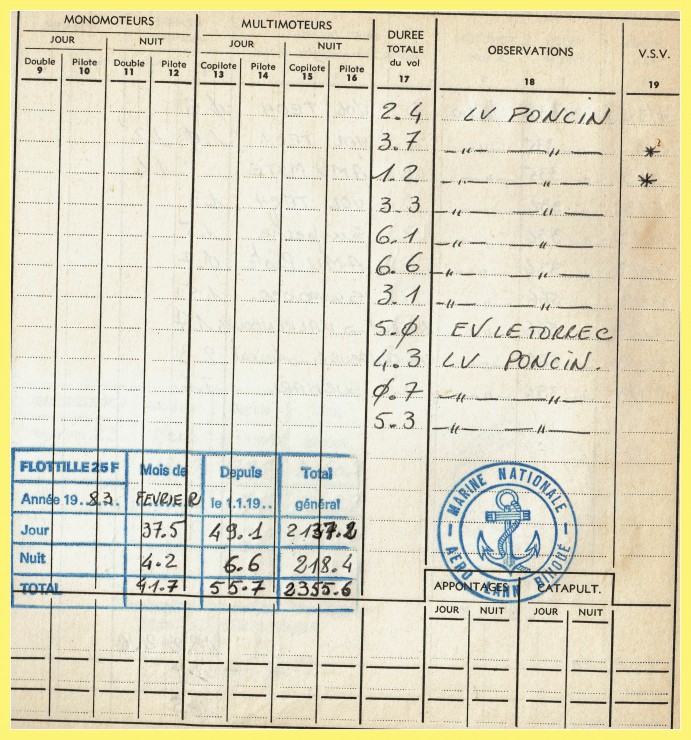 MONOMOTEURS MULTIMOTEURS DUREE TOTALE du vol OBSERVATIONS V.S.V.
JOUR NUIT JOUR NUIT
Double Pilote Double Pilote Copilote Pilote Copilote Pilote
9 10 11 12 13 14 15 16 17 18 19
2.4 LV PONCIN
3.7 —〃— —〃— *
1.2 —〃— —〃— *
3.3 —〃— —〃—
6.1 —〃— —〃—
6.6 —〃— —〃—
3.1 —〃— —〃—
5.Ø EV LE TORREC
4.3 LV PONCIN.
Ø.7 —〃— —〃—
5.3 —〃— —〃—
FLOTTILLE 25 F Mois de Depuis Total
Année 19.83.. FEVRIER le 1.1.19.. général
Jour 37.5 49.1 2137.2
Nuit 4.2 6.6 218.4
TOTAL 41.7 55.7 2355.6
MARINE NATIONALE
APPONTAGES CATAPULT.
JOUR NUIT JOUR NUIT